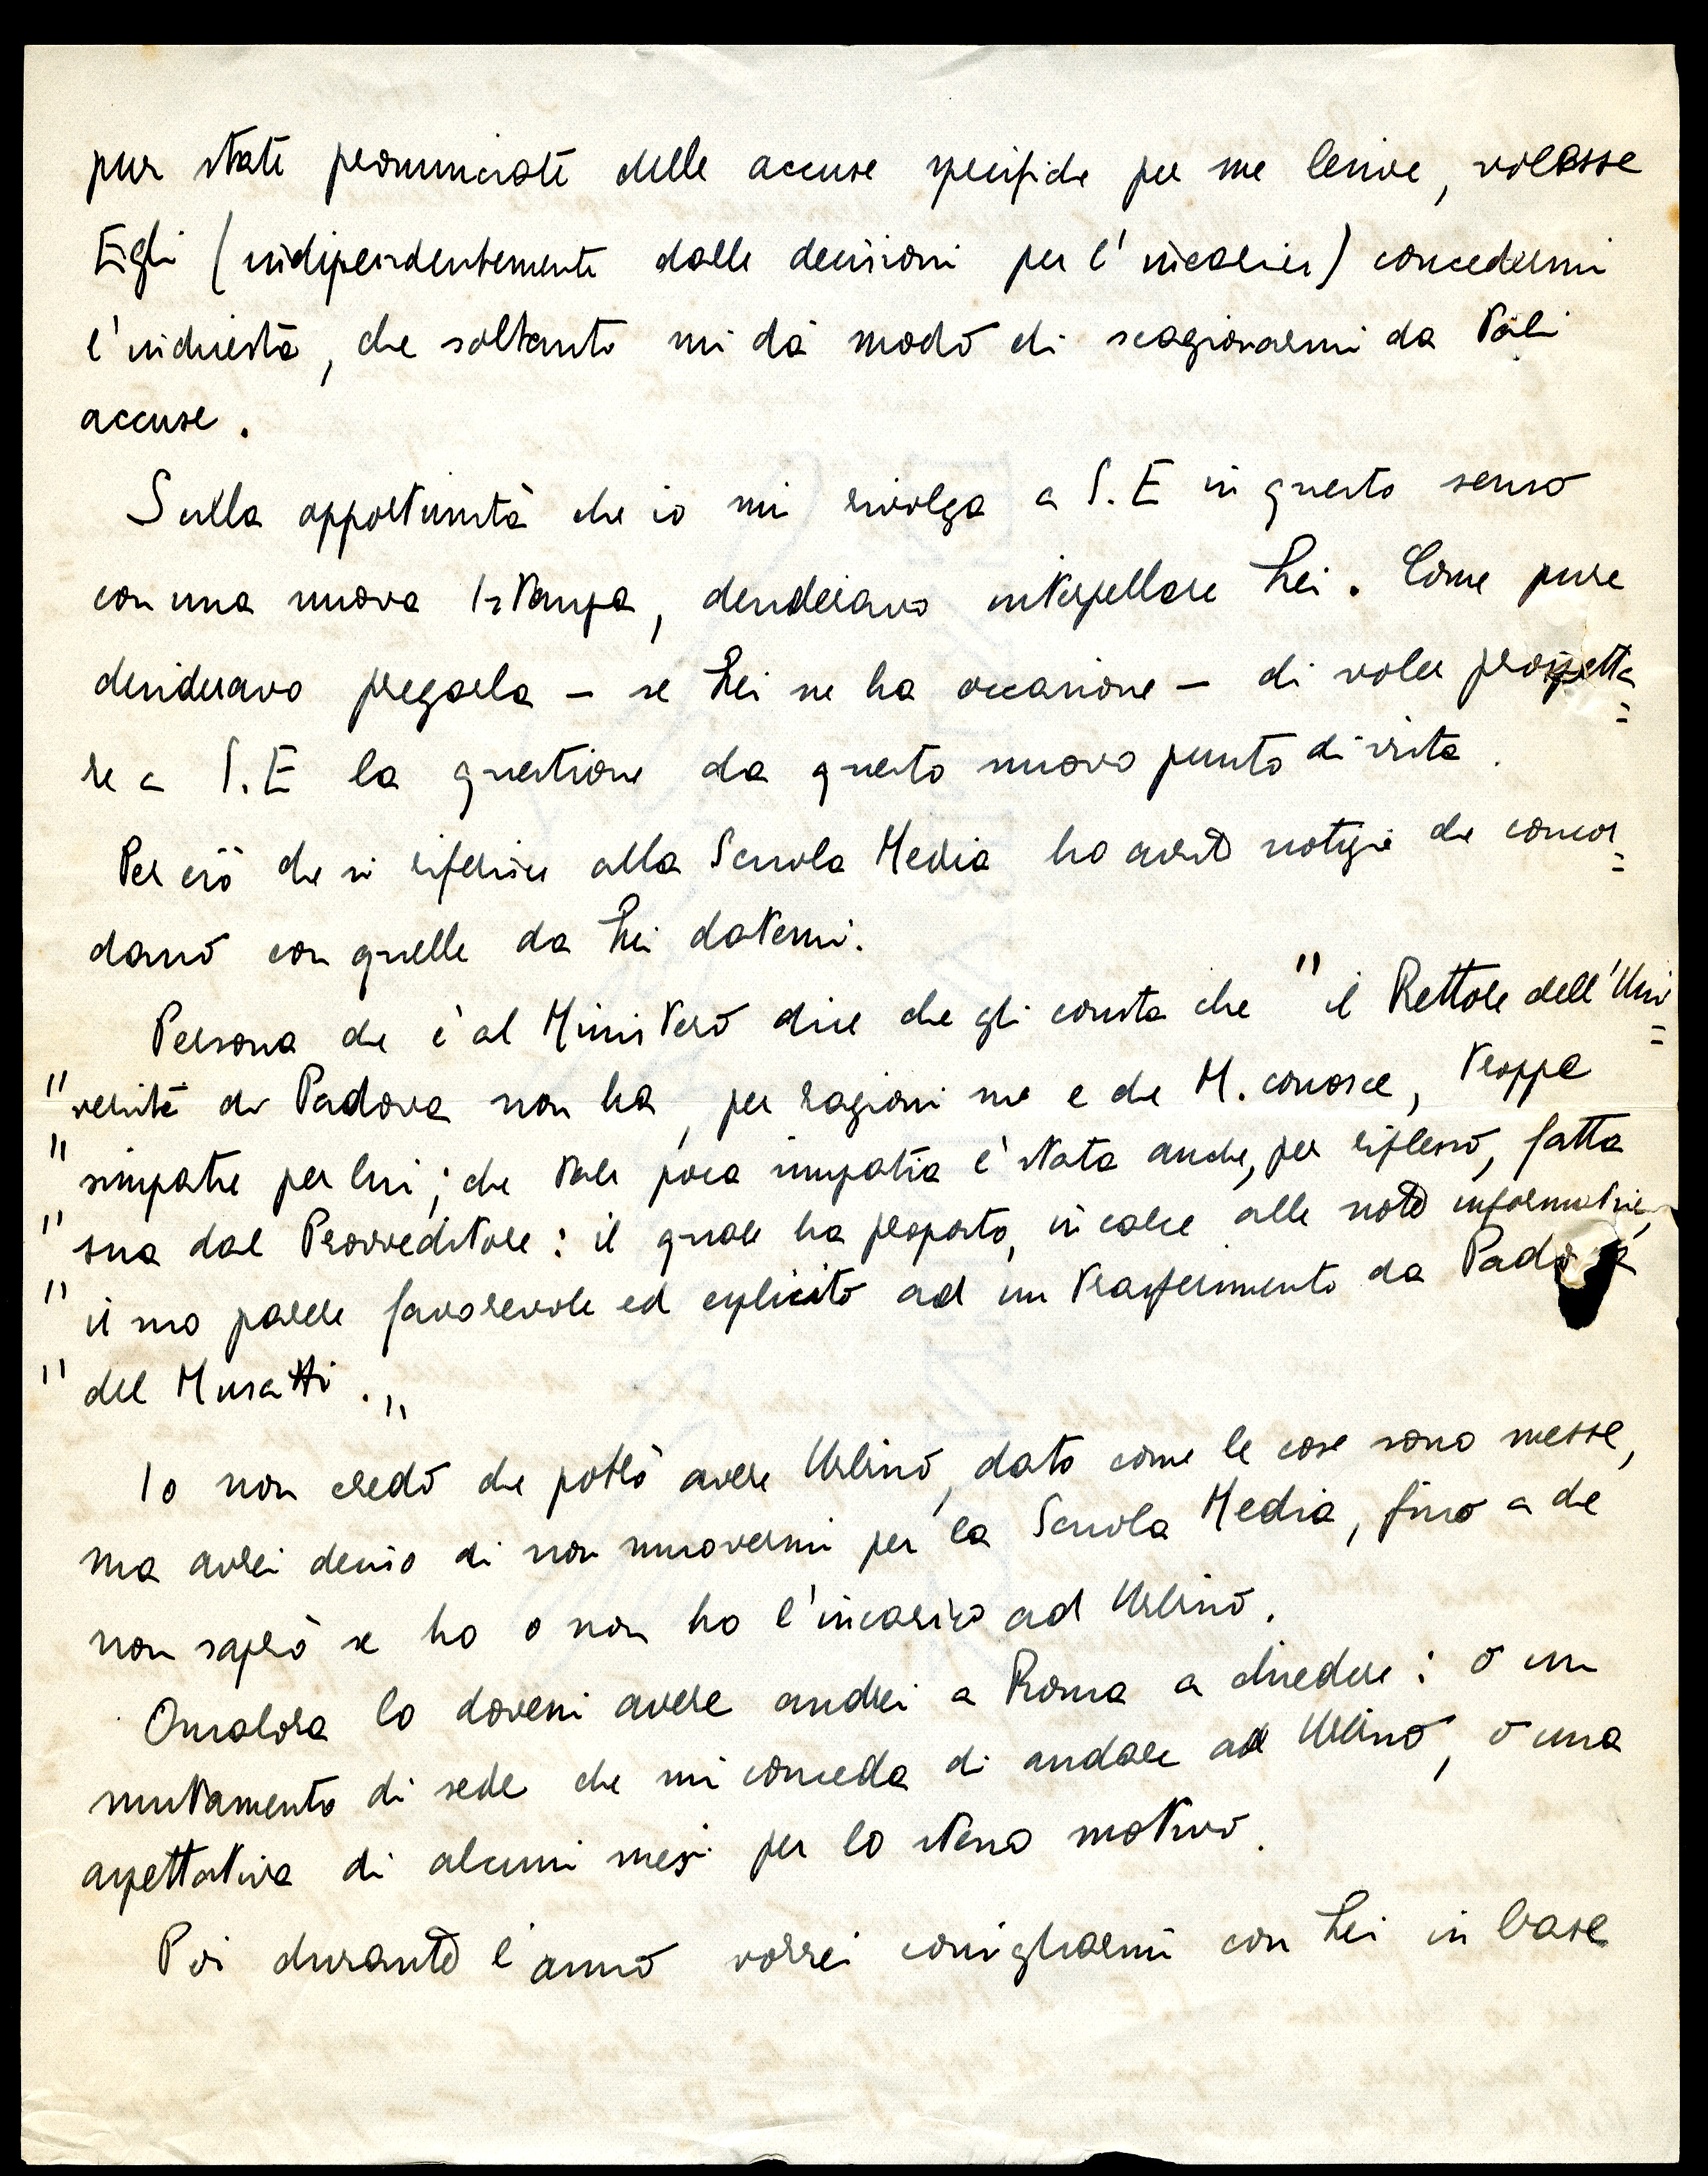 pur state pronunciate delle accuse specifiche per me lesive, volesse
Egli (indipendentemente dalle decisioni per l'incarico) concedermi
l'inchiesta, che soltanto mi dà modo di scagionarmi da tali
accuse.
Sulla opportunità che io mi rivolga a S.E in questo senso
con una nuova Istanza, desideravo interpellare Lei. Come pure
desideravo pregarla – se Lei ne ha occasione – di voler prospetta=
re a S.E la questione da questo nuovo punto di vista.
Per ciò che si riferisce alla Scuola Media ho avuto notizie che concor=
dano con quelle da Lei datemi.
Persona che è al Ministero dice che gli consta che "il Rettore dell'Uni=
"versità di Padova non ha, per ragioni sue e che M. conosce, troppe
"simpatie per lui; che tale poca simpatia è stata anche, per riflesso, fatta
"sua dal Provveditore: il quale ha proposto, in calce alle note informative,
"il suo parere favorevole ed esplicito ad un trasferimento da Padova
"del Musatti.„
Io non credo che potrò avere Urbino, dato come le cose sono messe,
ma avrei deciso di non muovermi per la Scuola Media, fino a che
non saprò se ho o non ho l'incarico ad Urbino.
Qualora lo dovessi avere andrei a Roma a chiedere: o un
mutamento di sede che mi conceda di andare ad Urbino, o una
aspettativa di alcuni mesi per lo stesso motivo.
Poi durante l'anno vorrei consigliarmi con Lei in base